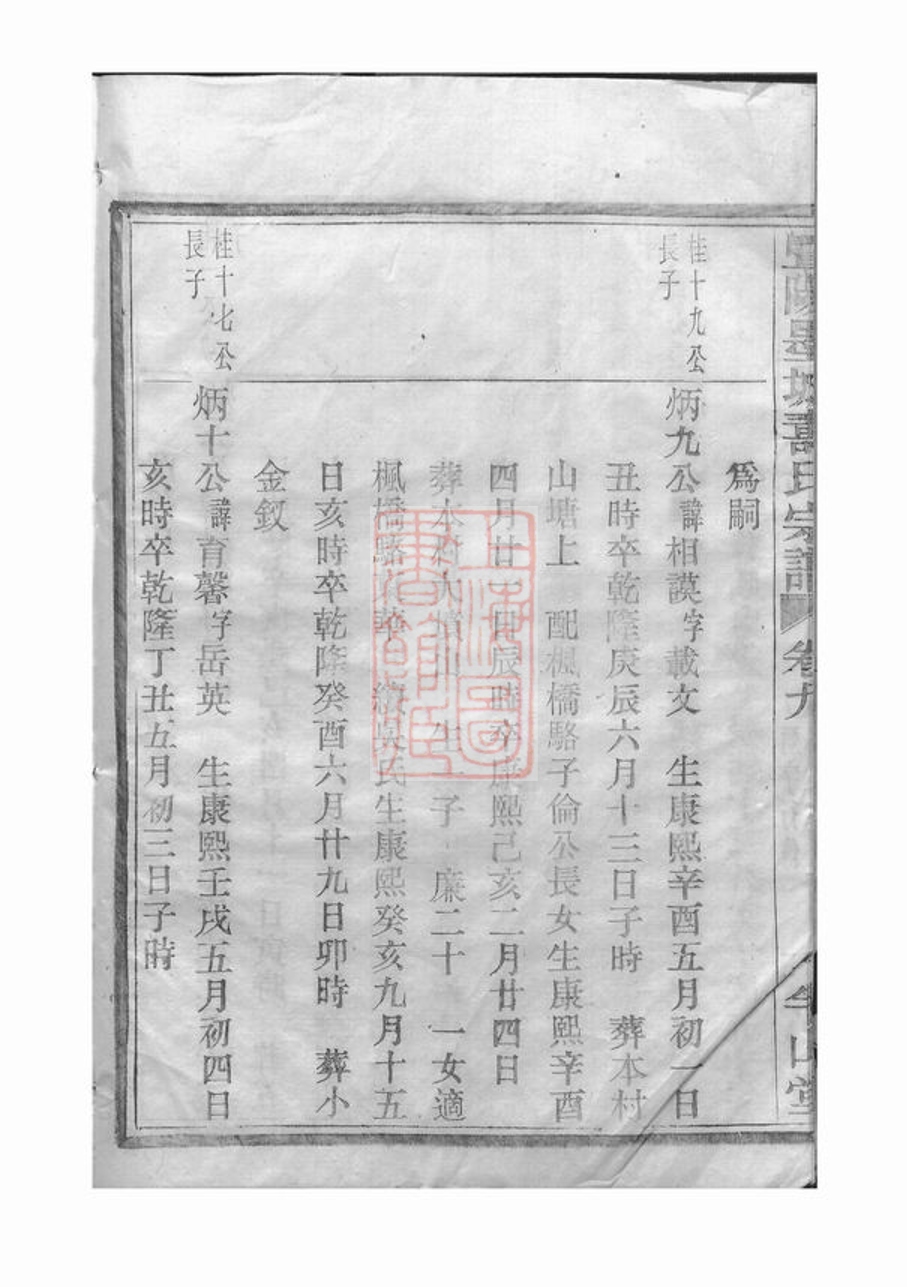 宗譜
卷九
為嗣
桂十九公
長子
炳九公諱相謨字載文 生康熙辛酉五月初一日
丑時卒乾隆庚辰六月十三日子時 葬本村
山塘上 配楓橋駱子倫公長女生康熙辛酉
四月廿一日辰時卒康熙己亥二月廿四日
葬本村大墳山 生一子 廉二十 一女適
楓橋駱 華 繼吳氏生康熙癸亥九月十五
日亥時卒乾隆癸酉六月廿九日卯時 葬小
金釵
桂十七公
長子
炳十公諱育馨字岳英 生康熙壬戌五月初四日
亥時卒乾隆丁丑五月初三日子時
上海圖
書館藏